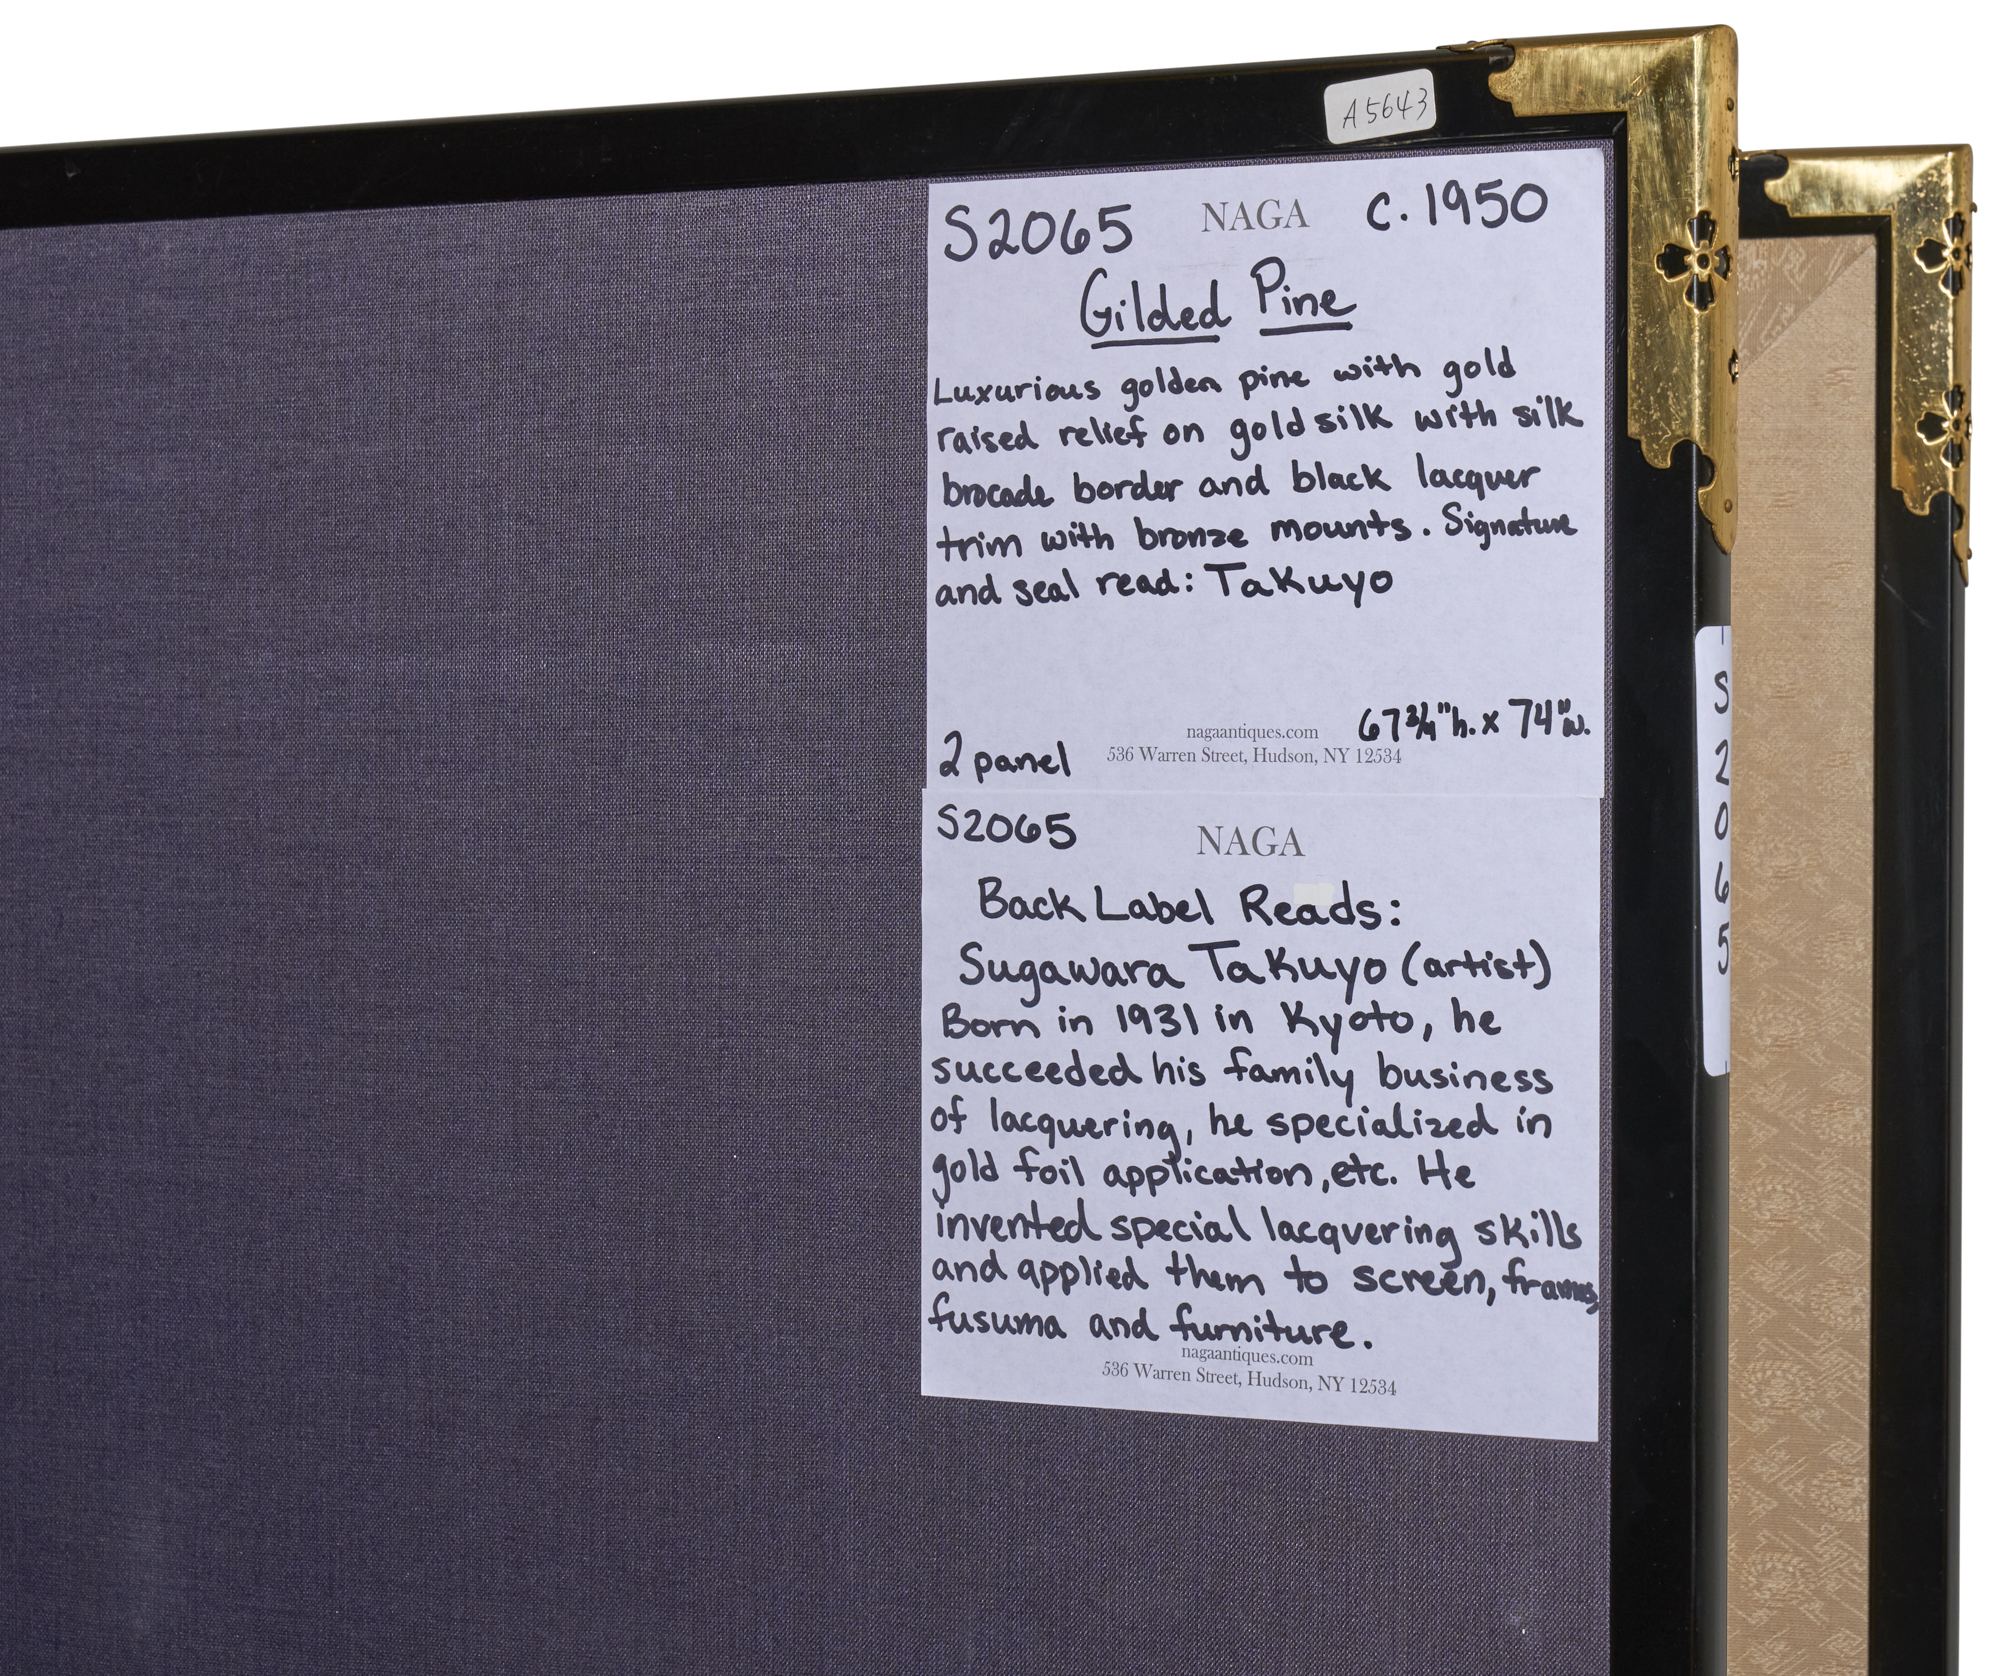 A5643
S2065 NAGA c. 1950
Gilded Pine
Luxurious golden pine with gold
raised relief on gold silk with silk
brocade border and black lacquer
trim with bronze mounts. Signature
and seal read: Takuyo
67 3/4"h. x 74"w.
nagaantiques.com
2 panel 536 Warren Street, Hudson, NY 12534
S2065 NAGA
Back Label Reads:
Sugawara Takuyo (artist)
Born in 1931 in Kyoto, he
succeeded his family business
of lacquering, he specialized in
gold foil application, etc. He
invented special lacquering skills
and applied them to screen, frames,
fusuma and furniture.
nagaantiques.com
536 Warren Street, Hudson, NY 12534
S2065